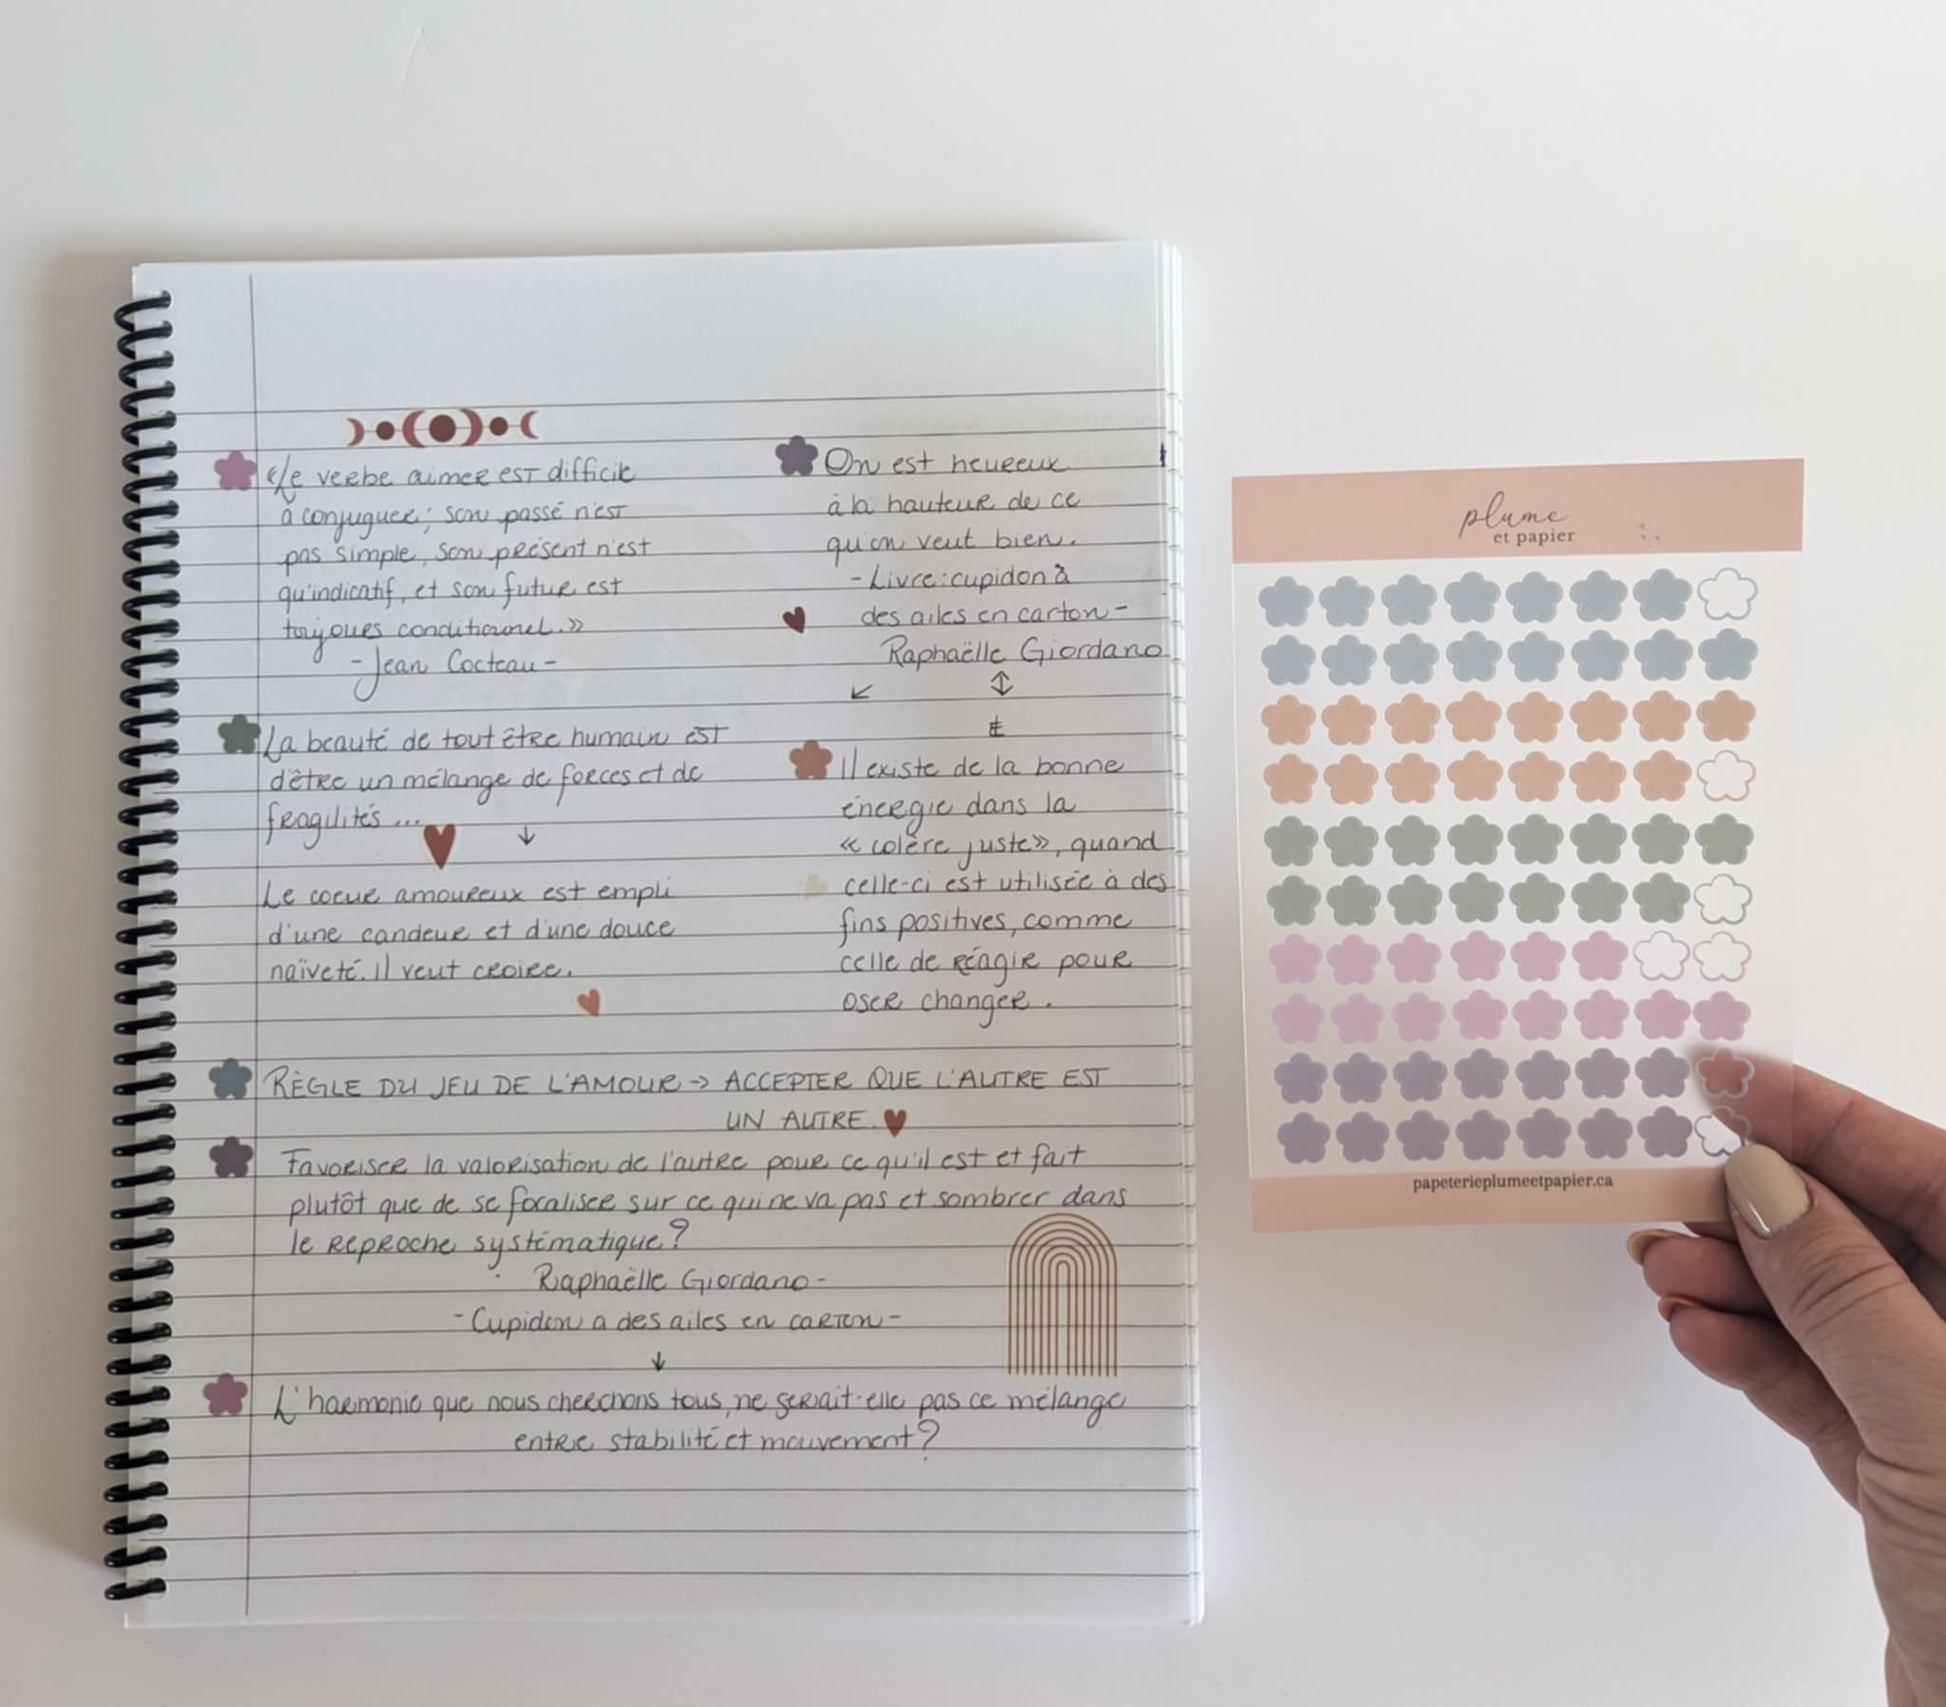 «Le verbe aimer est difficile
à conjuguer; son passé n'est
pas simple, son présent n'est
qu'indicatif, et son futur est
toujours conditionnel.»
-Jean Cocteau-
La beauté de tout être humain est
d'être un mélange de forces et de
fragilités ...
↓
Le coeur amoureux est empli
d'une candeur et d'une douce
naïveté. Il veut croire.
On est heureux
à la hauteur de ce
qu'on veut bien.
-Livre: cupidon à
des ailes en carton-
Raphaëlle Giordano
↙ ↕
Il existe de la bonne
énergie dans la
«colère juste», quand
celle-ci est utilisée à des
fins positives, comme
celle de réagir pour
oser changer.
RÈGLE DU JEU DE L'AMOUR → ACCEPTER QUE L'AUTRE EST
UN AUTRE.
Favoriser la valorisation de l'autre pour ce qu'il est et fait
plutôt que de se focaliser sur ce qui ne va pas et sombrer dans
le reproche systématique?
Raphaëlle Giordano-
-Cupidon a des ailes en carton-
↓
L'harmonie que nous cherchons tous, ne serait-elle pas ce mélange
entre stabilité et mouvement?
plume
et papier
papeterieplumeetpapier.ca